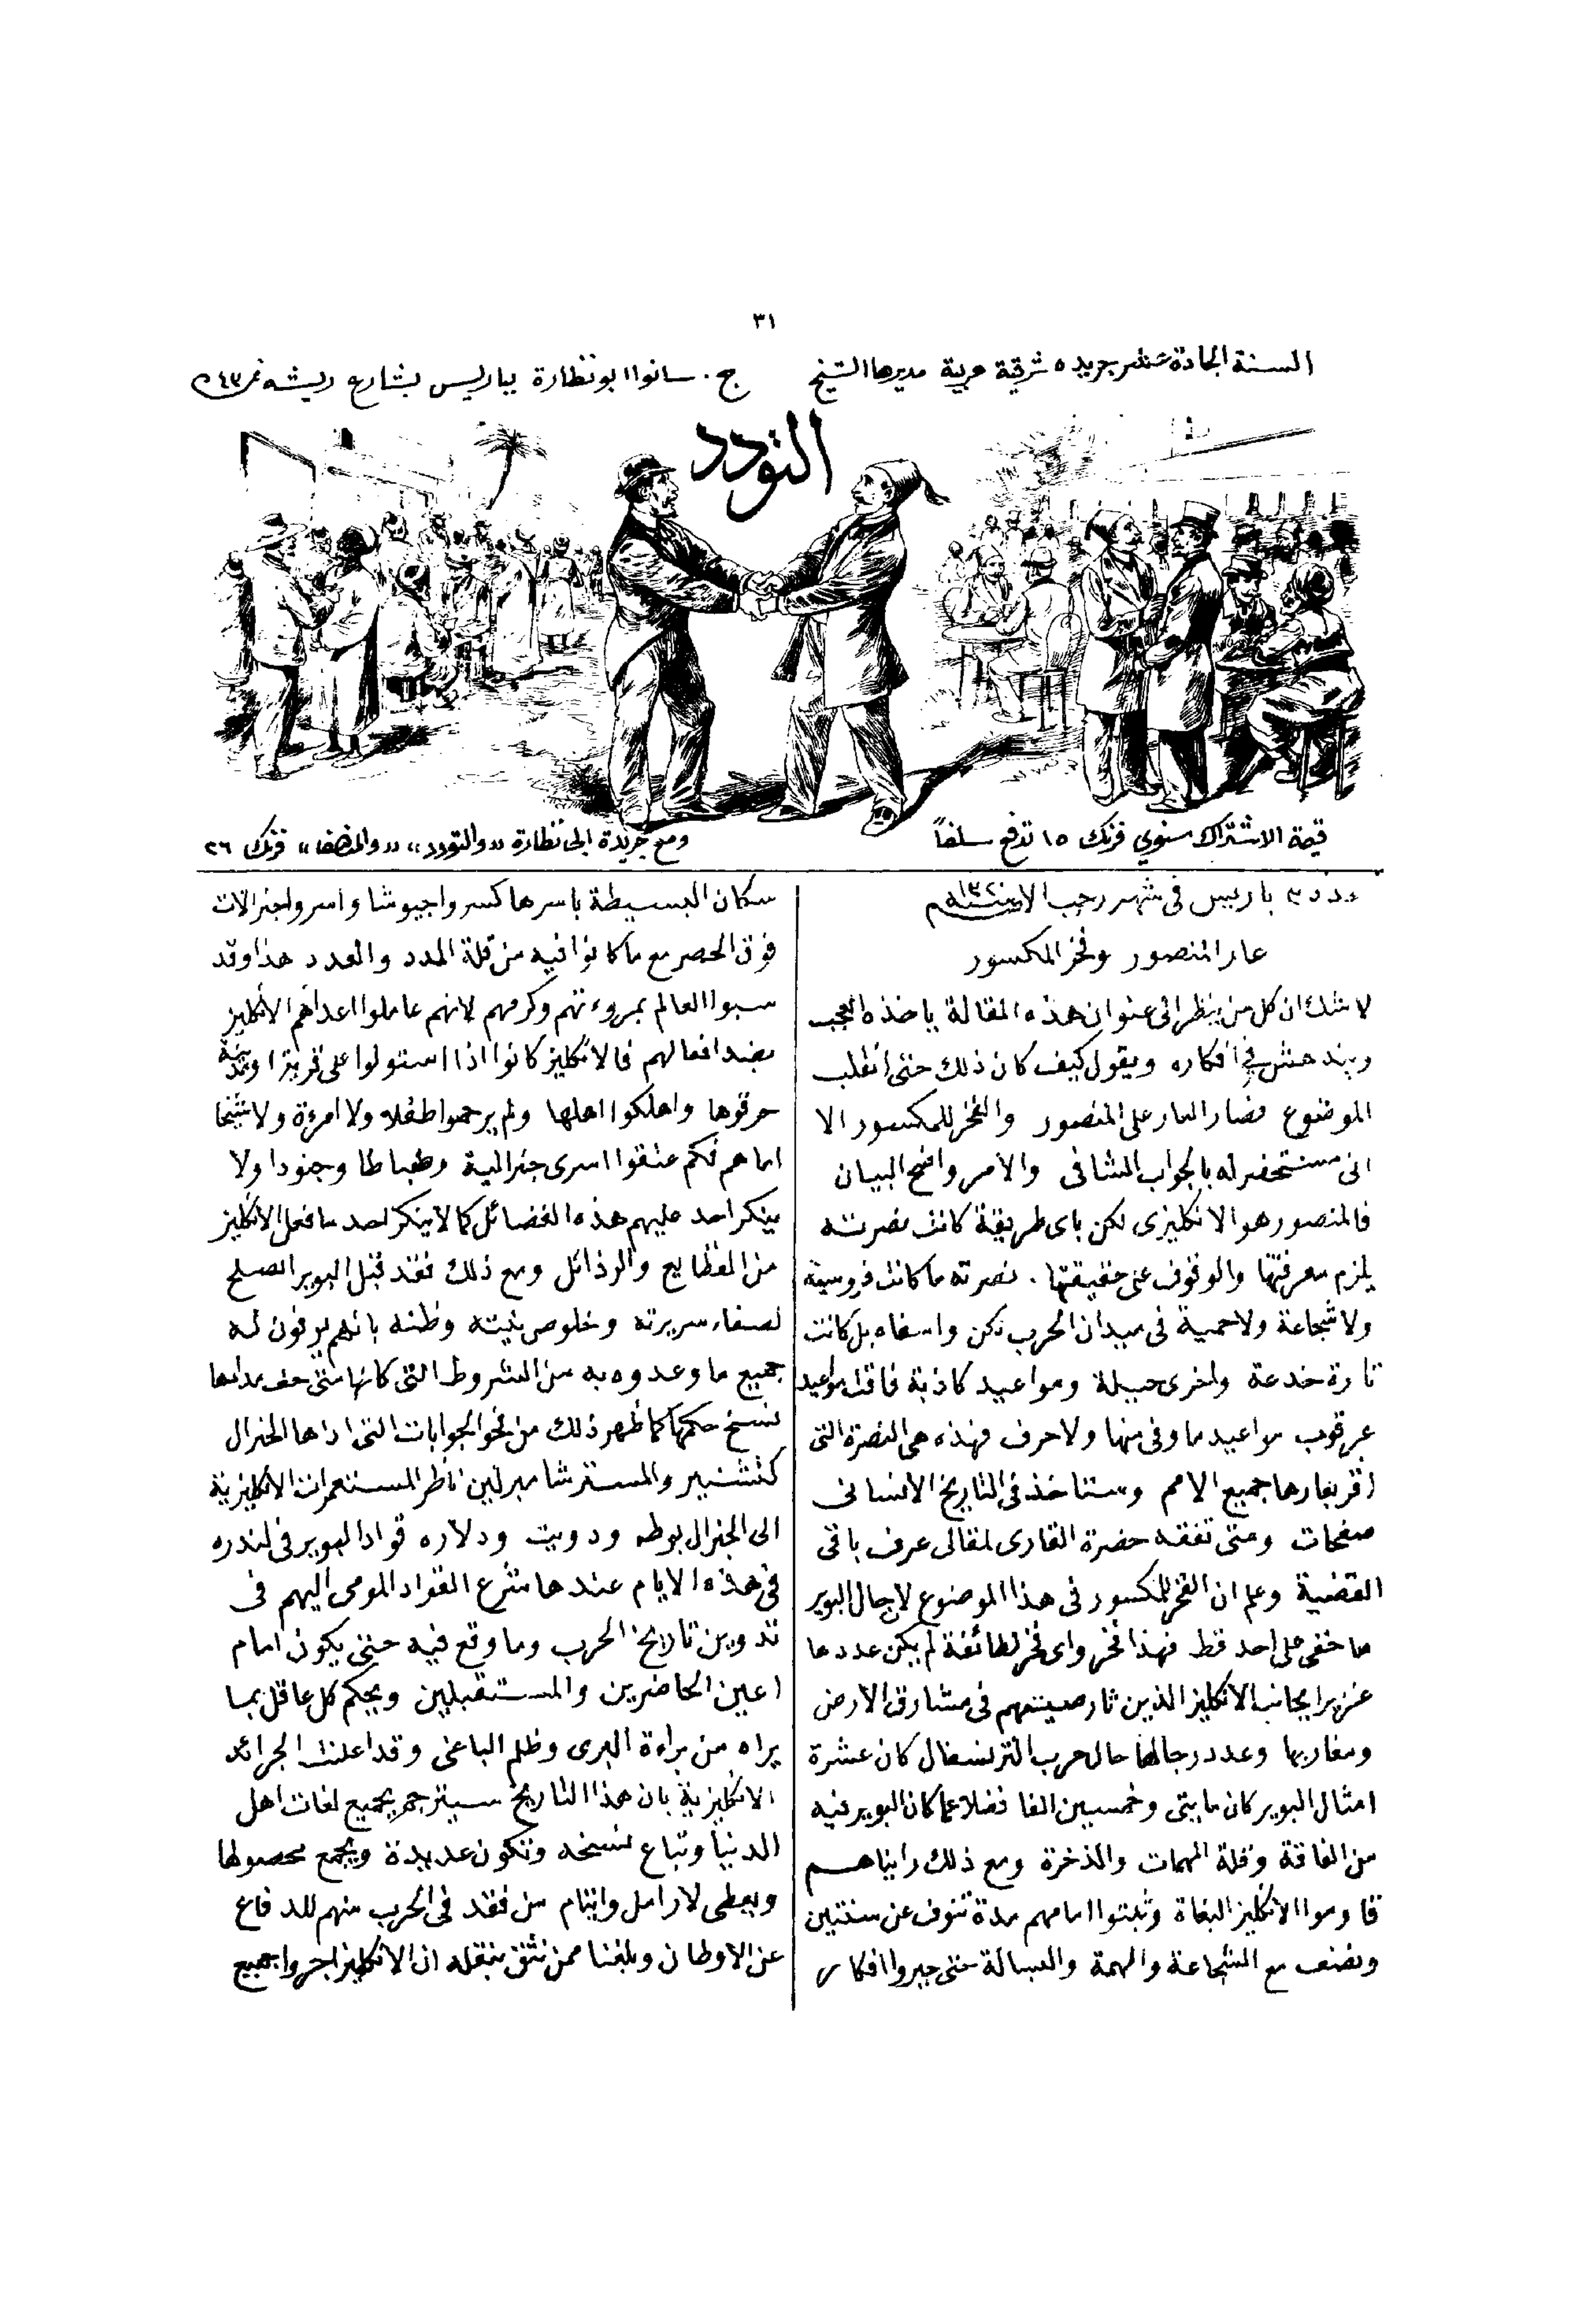 ٣١
السنة الحادة عشر جريده شرقية عربية مديرها الشيخ ج. سانوا ابو نظارة بباريس بشارع ريشه نمر ٤٣
التودد
قيمة الاشتراك سنوي فرنك ١٥ تدفع سلفاً
ومع جريدة ابى نظارة «والتودد» «والمنصف» فرنك ٢٦
عدد ٣ باريس فى شهر رجب ١٣٢٠
عار المنصور وفخر المكسور
لا شك ان كل من ينظر الى عنوان هذه المقالة ياخذه العجب
ويندهش في افكاره ويقول كيف كان ذلك حتى انقلب
الموضوع فصار العار على المنصور والفخر للمكسور الا
انى مستحضر له بالجواب الشافى والامر واضح البيان
فالمنصور هو الانكليزى لكن باى طريقة كانت نصرته
يلزم معرفتها والوقوف على حقيقتها . نصرته ما كانت فروسية
ولا شجاعة ولا حمية فى ميدان الحرب لكن واسفاه بل كانت
تارة خدعة واخرى حيلة ومواعيد كاذبة فاقت مواعيد
عرقوب مواعيد ما وفى منها ولا حرف فهذه هى النصرة التى
اقر بعارها جميع الامم وستاخذ فى التاريخ الانسانى
صفحات ومتى تفقه حضرة القارى لمقالى عرف باقى
القضية وعلم ان الفخر للمكسور فى هذا الموضوع لا جال البوير
ما خفى على احد قط فهذا فخر واى فخر لطائفة لم يكن عددها
غزيرا بجانب الانكليز الذين ثار صيتهم فى مشارق الارض
ومغاربها وعدد رجالها حال حرب الترنسفال كان عشرة
امثال البوير كان مايتى وخمسين الفا فضلا عما كان البوير فيه
من الفاقة وقلة المهمات والذخرة ومع ذلك رايناهم
قاوموا الانكليز البغاة وثبتوا امامهم مدة تنوف عن سنتين
ونصف مع الشجاعة والهمة والبسالة حتى حيروا افكار
سكان البسيطة باسرها كسروا جيوشا واسروا جنرالات
فوق الحصر مع ما كانوا فيه من قلة المدد والعدد هذا وقد
سبوا العالم بمروءتهم وكرمهم لانهم عاملوا اعداهم الانكليز
بضد افعالهم فالانكليز كانوا اذا استولوا على قرية او مدينة
حرقوها واهلكوا اهلها ولم يرحموا طفلا ولا امرءة ولا شيخا
اما هم فكم عتقوا اسرى جنرالية وظباطا وجنودا ولا
ينكر احد عليهم هذه الفضائل كما لا ينكر احد ما فعل الانكليز
من الفظايع والرذائل ومع ذلك فقد قبل البوير الصلح
لصفاء سريرته وخلوص نيته وظنه بانهم يوفون له
جميع ما وعدوه به من الشروط التى كانها متى جف مدادها
نسخ حكمها كما ظهر ذلك من نحو الجوابات التى اداها الجنرال
كتشنير والمستر شامبرلين ناظر المستعمرات الانكليزية
الى الجنرال بوطه ودويت ودلاره قواد البوير فى لندره
فى هذه الايام عندها شرع القواد المومى اليهم فى
تدوين تاريخ الحرب وما وقع فيه حتى يكون امام
اعين الحاضرين والمستقبلين ويحكم كل عاقل بما
يراه من براءة البرى وظلم الباغى وقد اعلنت الجرائد
الانكليزية بان هذا التاريخ سيترجم بجميع لغات اهل
الدنيا وتباع نسخه وتكون عديدة ويجمع محصولها
ويعطى لارامل وايتام من فقد فى الحرب منهم للدفاع
عن الاوطان وبلغنا ممن نثق بنقله ان الانكليز اجروا جميع